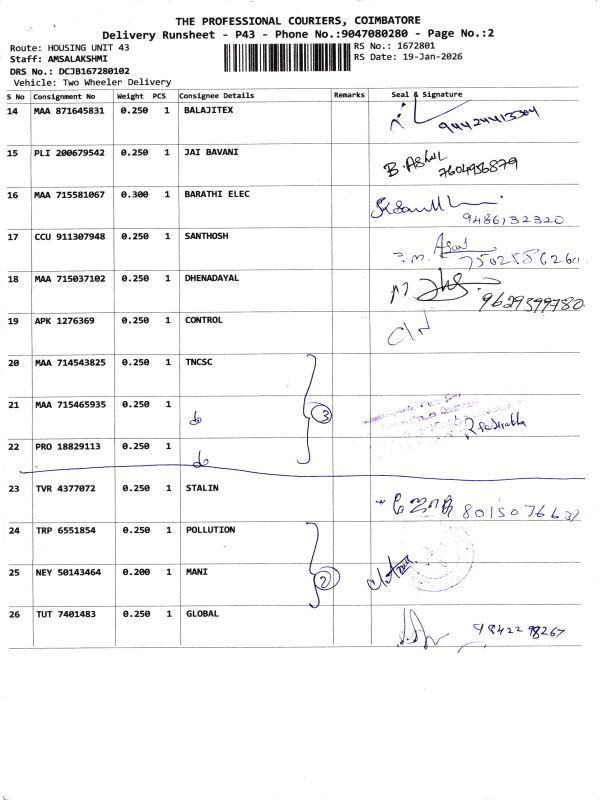 THE PROFESSIONAL COURIERS, COIMBATORE
Delivery Runsheet - P43 - Phone No.:9047080280 - Page No.:2
Route: HOUSING UNIT 43
RS No.: 1672801
Staff: AMSALAKSHMI
RS Date: 19-Jan-2026
DRS No.: DCJB167280102
Vehicle: Two Wheeler Delivery
S No Consignment No Weight PCS Consignee Details Remarks Seal & Signature
14 MAA 871645831 0.250 1 BALAJITEX 94424413304
15 PLI 200679542 0.250 1 JAI BAVANI
7604956879
16 MAA 715581067 0.300 1 BARATHI ELEC
9486132320
17 CCU 911307948 0.250 1 SANTHOSH
18 MAA 715037102 0.250 1 DHENADAYAL
9629399780
19 APK 1276369 0.250 1 CONTROL
20 MAA 714543825 0.250 1 TNCSC
21 MAA 715465935 0.250 1 3
22 PRO 18829113 0.250 1
23 TVR 4377072 0.250 1 STALIN
24 TRP 6551854 0.250 1 POLLUTION
25 NEY 50143464 0.200 1 MANI 2
26 TUT 7401483 0.250 1 GLOBAL 9842298267